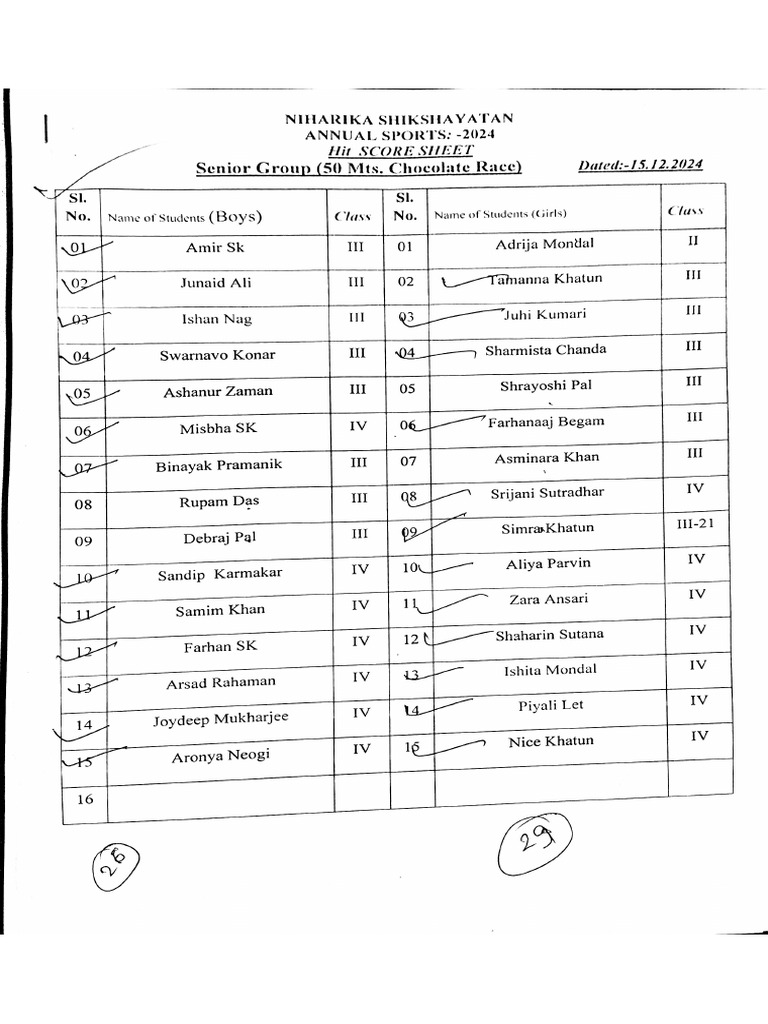 NIHARIKA SHIKSHAYATAN
ANNUAL SPORTS: -2024
Hit SCORE SHEET
Senior Group (50 Mts. Chocolate Race) Dated:-15.12.2024
Sl. No. Name of Students (Boys) Class Sl. No. Name of Students (Girls) Class
01 Amir Sk III 01 Adrija Mondal II
02 Junaid Ali III 02 Tamanna Khatun III
03 Ishan Nag III 03 Juhi Kumari III
04 Swarnavo Konar III 04 Sharmista Chanda III
05 Ashanur Zaman III 05 Shrayoshi Pal III
06 Misbha SK IV 06 Farhanaaj Begam III
07 Binayak Pramanik III 07 Asminara Khan III
08 Rupam Das III 08 Srijani Sutradhar IV
09 Debraj Pal III 09 Simra Khatun III-21
10 Sandip Karmakar IV 10 Aliya Parvin IV
11 Samim Khan IV 11 Zara Ansari IV
12 Farhan SK IV 12 Shaharin Sutana IV
13 Arsad Rahaman IV 13 Ishita Mondal IV
14 Joydeep Mukharjee IV 14 Piyali Let IV
15 Aronya Neogi IV 15 Nice Khatun IV
16
26 29